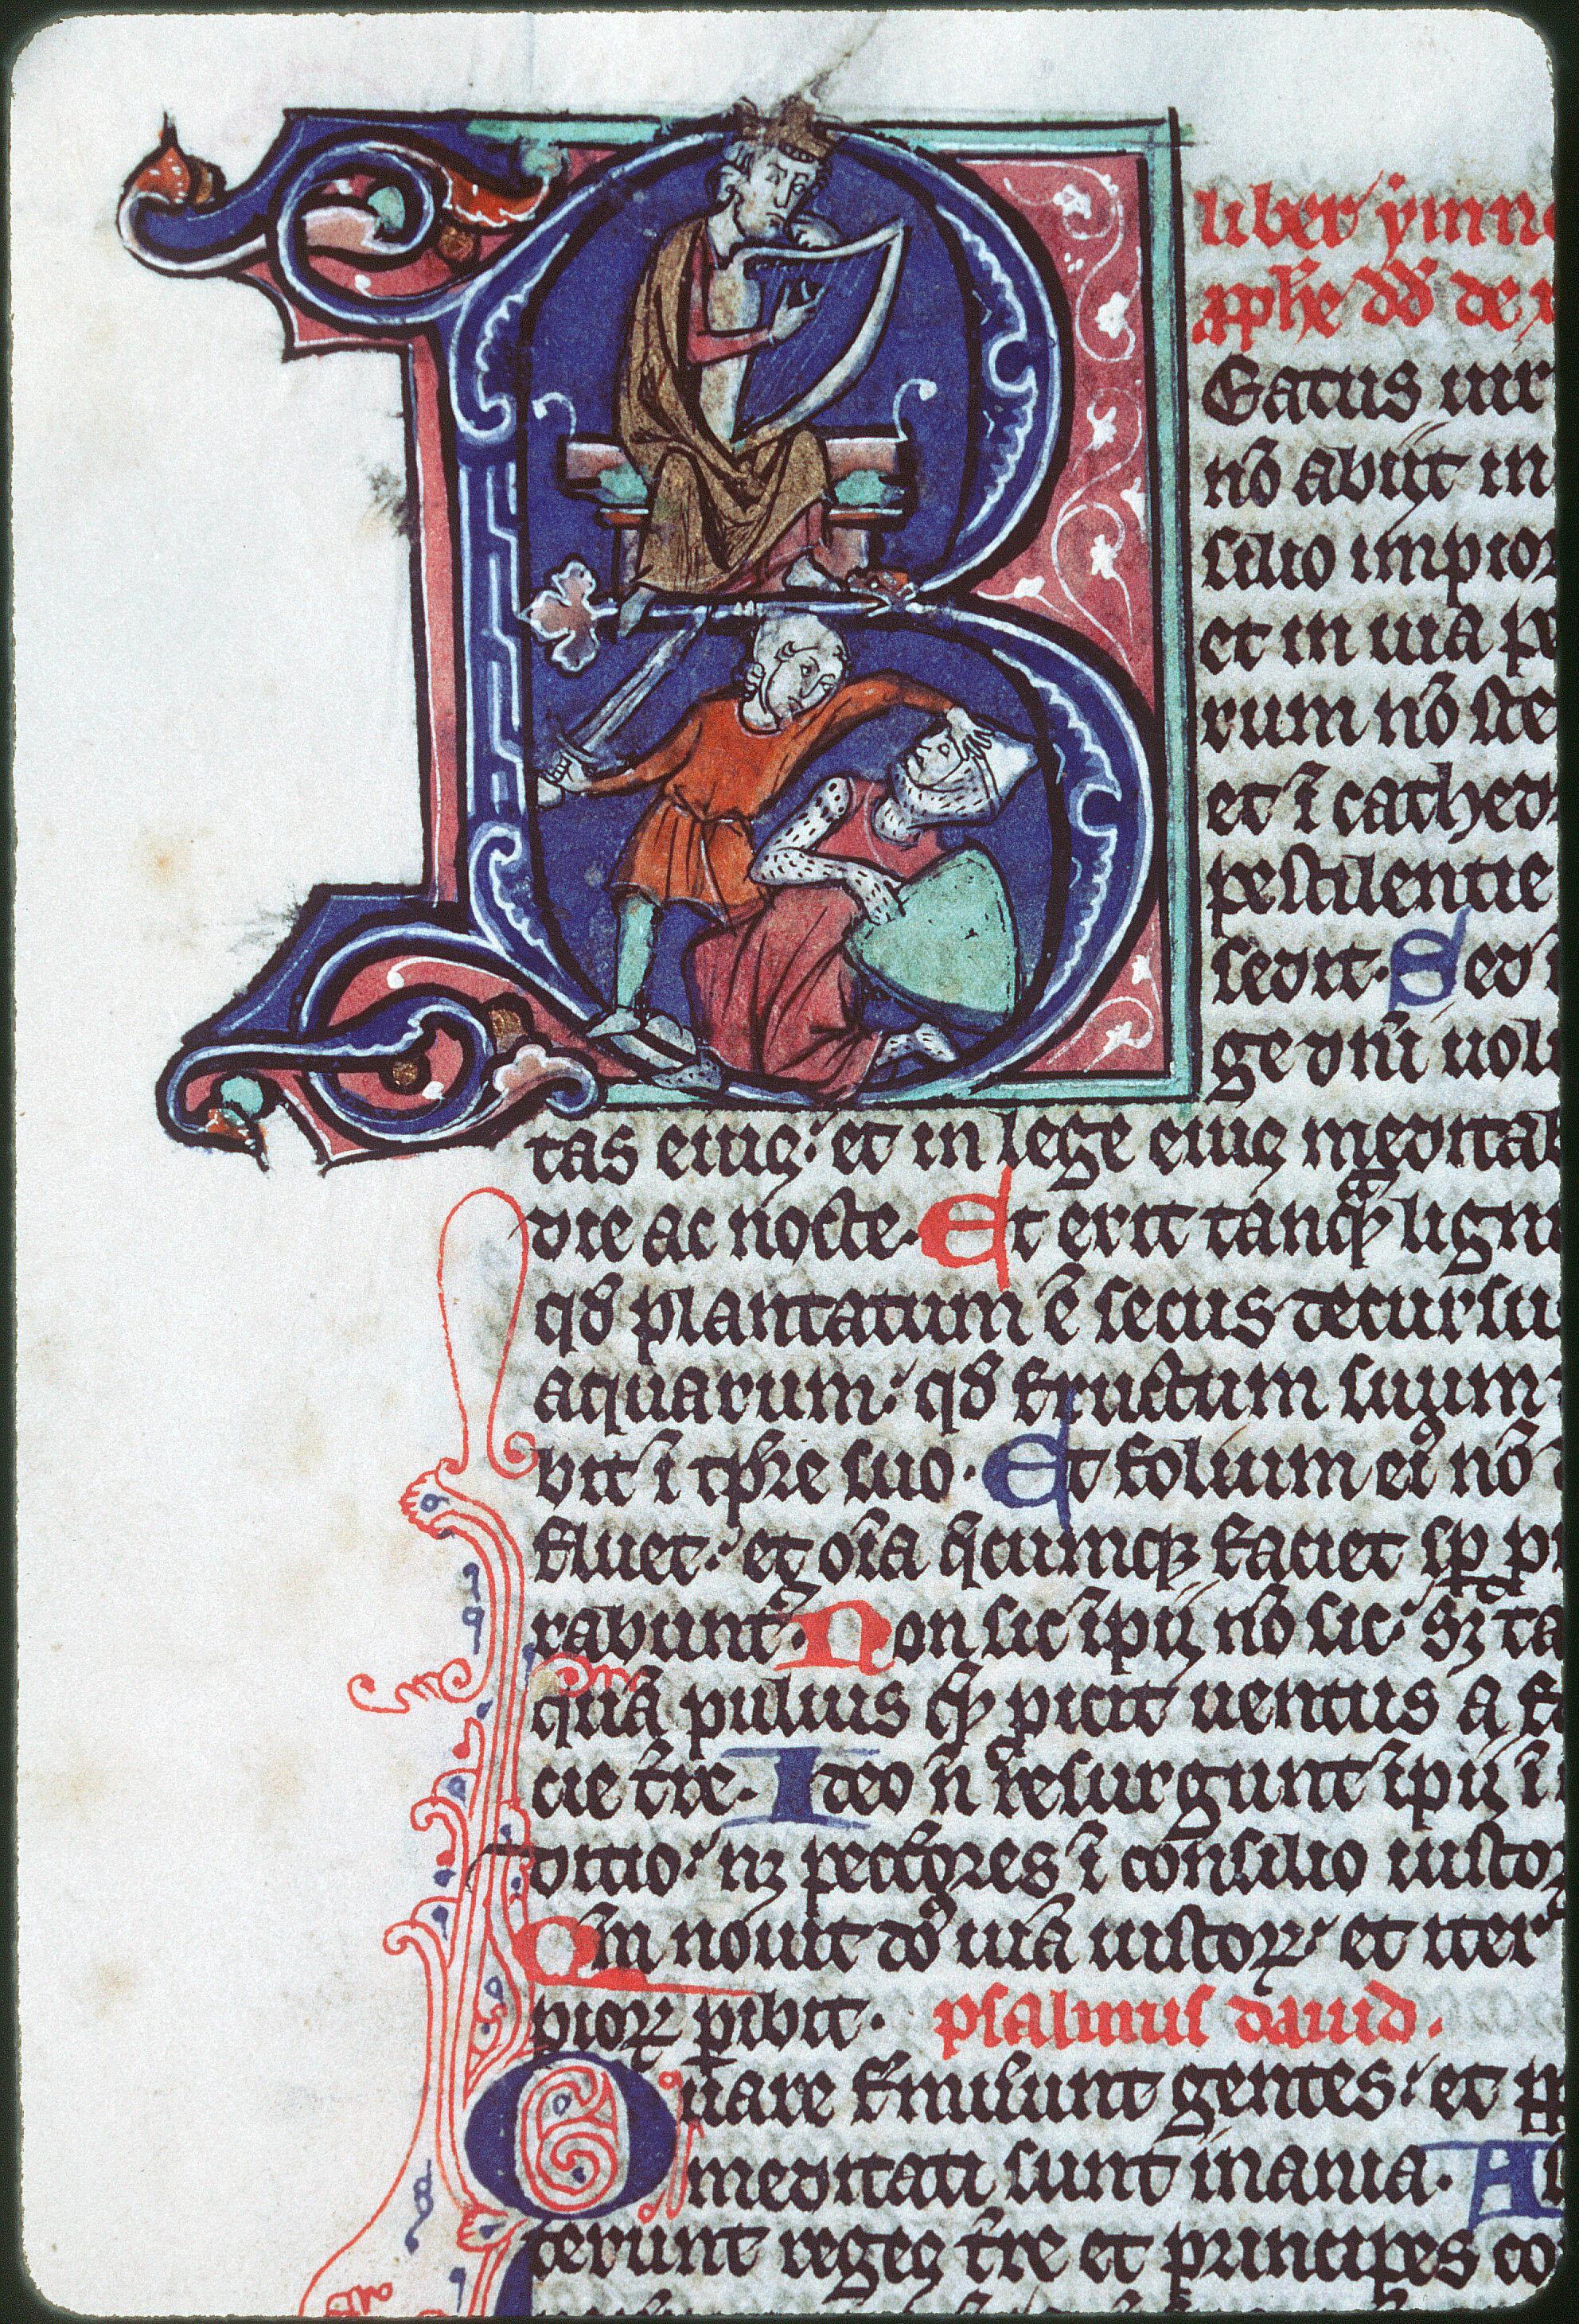 liber ẏmno
ꝓphe dđ de
Eatus uir
nō abiit in
silio impior
et in uia pe
rum nō ste
et ī cathed
pestilentie
sedit. Sed
ge dn̄i uolū
tas eius: et in lege eius meditab
die ac nocte. Et erit tanꝙ̄ lignū
qđ plantatum ē secus decursu
aquarum: qđ fructum suum
bit ī tp̄re suo. Et folium ei nō
fluet: et oīa q̄cumqꝫ faciet
rabunt᷑. Non sic īpii nō sic: sꝫ ta
quā puluis ꝙ̄ ꝓicit uentus a fa
cie tr̄re. Ideo n̄ resurgunt īpii ī
dicio: nꝫ pecc̄ores ī consilio iustoꝝ
Qm̄ nouit dn̄s uiā iustoꝝ: et iter
pioꝝ ꝑibit. psalmus dauid.
Quare fremuerunt gentes: et
meditati sunt inania. As
terunt reges tr̄re et principes co